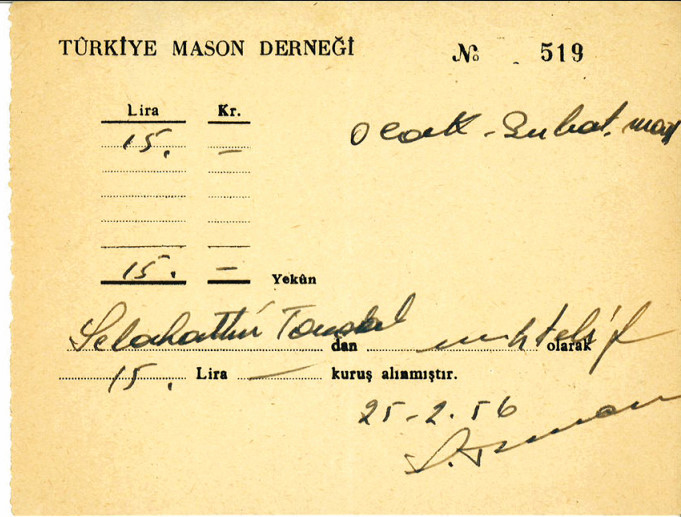 TÜRKİYE MASON DERNEĞİ № 519
Lira Kr.
Ocak - Şubat.
15. —
15. — Yekûn
Selahattin dan muhtelif olarak
15. Lira — kuruş alınmıştır.
25-2.56